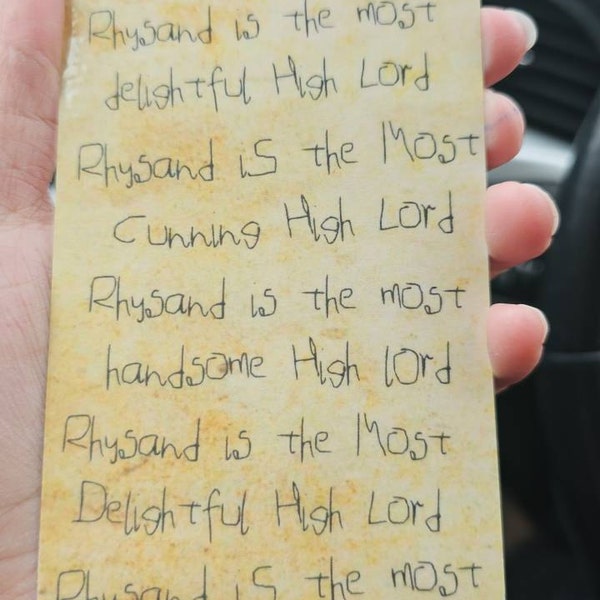 Rhysand is the most
delightful High Lord
Rhysand is the Most
Cunning High Lord
Rhysand is the most
handsome High lord
Rhysand is the Most
Delightful High Lord
Rhysand is the most